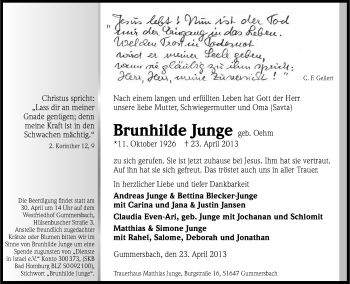 Jesus lebt! Nun ist der Tod
mir der Eingang in das Leben.
Welchen Trost in Todesnot
wird er meiner Seele geben,
wenn sie gläubig zu ihm spricht:
Herr, Herr, meine Zuversicht!
C. F. Gellert
Christus spricht:
"Lass dir an meiner
Gnade genügen; denn
meine Kraft ist in den
Schwachen mächtig."
2. Korinther 12, 9
Die Beerdigung findet statt am
30. April um 14 Uhr auf dem
Westfriedhof Gummersbach,
Hülsenbuscher Straße 3.
Anstelle freundlich zugedachter
Kränze oder Blumen bitten wir im
Sinne von Brunhilde Junge um eine
Spende zugunsten von "Dienste
in Israel e.V." Konto 300375, (SKB
Bad Homburg BLZ 50092100),
Stichwort "Brunhilde Junge".
Nach einem langen und erfüllten Leben hat Gott der Herr
unsere liebe Mutter, Schwiegermutter und Oma (Savta)
Brunhilde Junge geb. Oehm
*11. Oktober 1926 † 23. April 2013
zu sich gerufen. Sie ist jetzt zuhause bei Jesus. Ihm hat sie vertraut.
Auf ihn hat sie sich gefreut. Das tröstet auch uns in aller Trauer.
In herzlicher Liebe und tiefer Dankbarkeit
Andreas Junge & Bettina Blecker-Junge
mit Carina und Jana & Justin Jansen
Claudia Even-Ari, geb. Junge mit Jochanan und Schlomit
Matthias & Simone Junge
mit Rahel, Salome, Deborah und Jonathan
Gummersbach, den 23. April 2013
Trauerhaus Matthias Junge, Burgstraße 16, 51647 Gummersbach